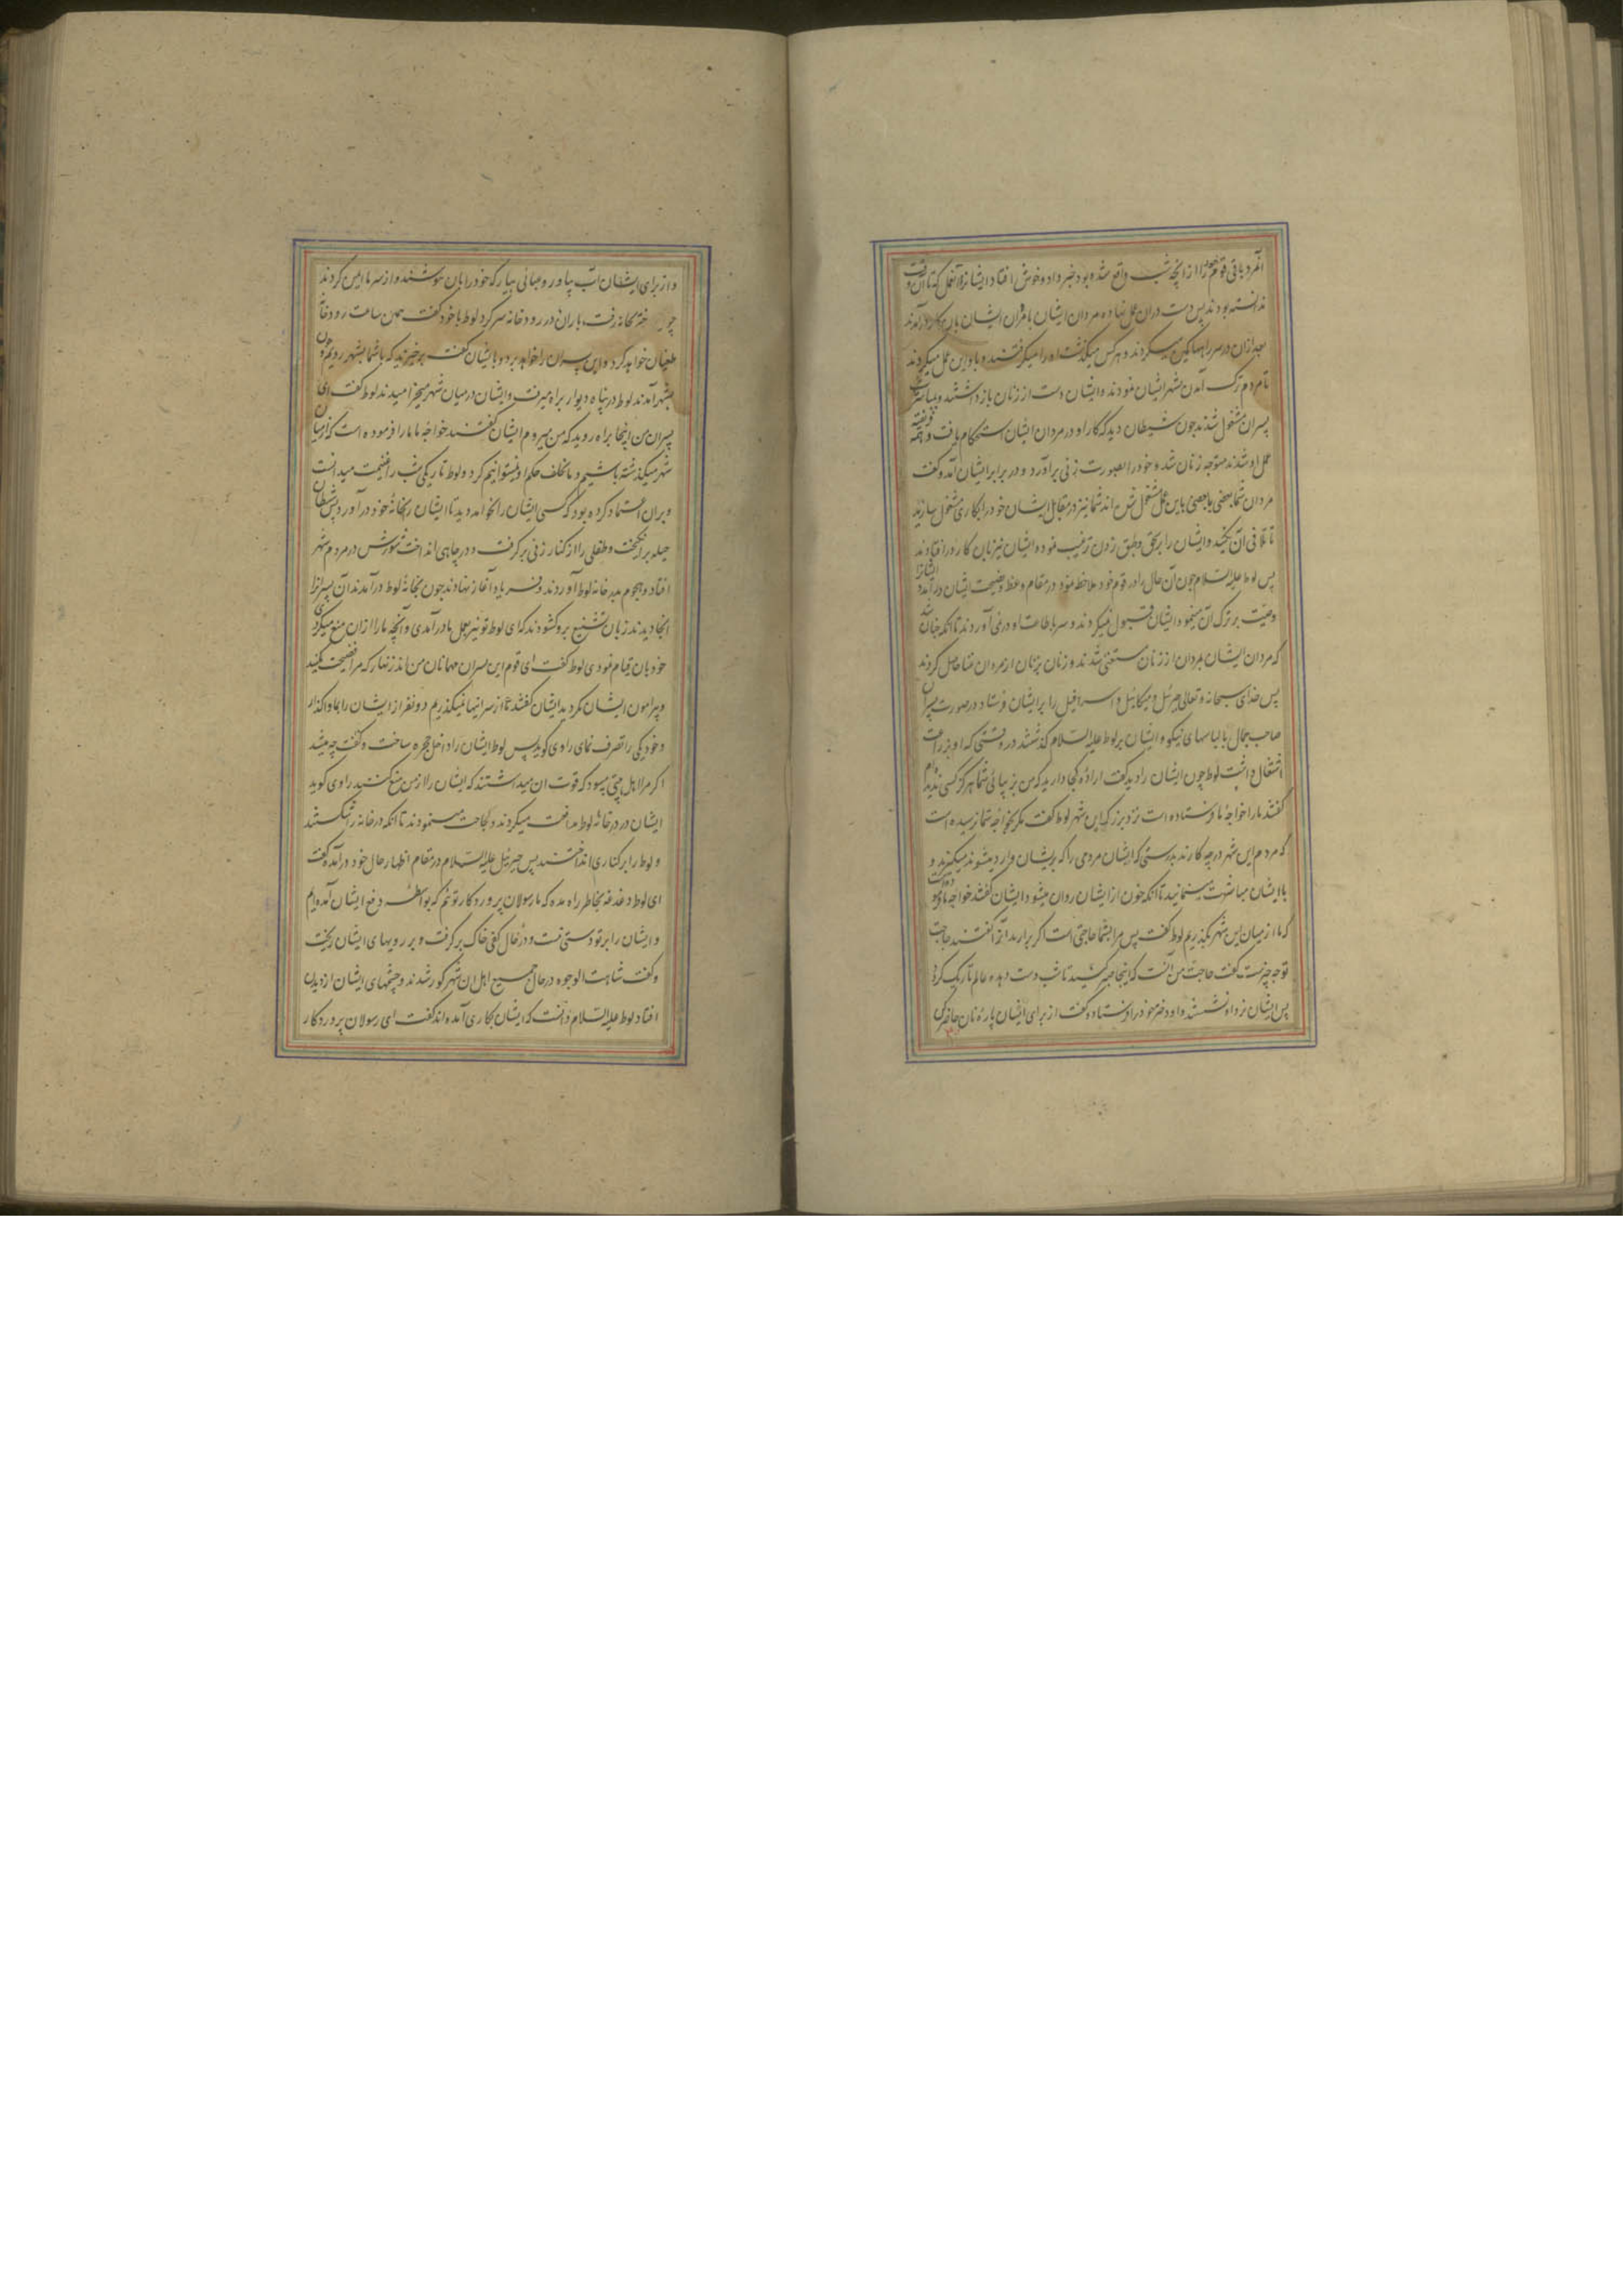 آنمرد باقی قوم خود را از آنچه شب واقع شده بود خبر داد و خوش افتاد ایشانرا آنعمل که تا آن وقت
ندانسته بودند پس دست در آن عمل نهاده مردان ایشان با مردان ایشان بآن کار درآمدند
بعد از آن در سر راهها کمین میکردند و هر کس میگذشت او را میگرفتند و با او این عمل میکردند
تا مردم ترک آمدن شهر ایشان نمودند و ایشان دست از زنان باز داشتند و بمباشرت
پسران مشغول شدند چون شیطان دید که کار او در مردان ایشان استحکام یافت و همه فریفته
عمل او شدند متوجه زنان شد و خود را بصورت زنی برآورد و در برابر ایشان آمد و گفت
مردان شما بعضی با بعضی باین عمل مشغول شده‌اند شما نیز در مقابل ایشان خود را بکاری مشغول سازید
تا تلافی آن بکنید و ایشان را بر طبق زدن ترغیب نموده ایشان نیز بآن کار در افتادند
پس لوط علیه السلام چون آن حال را در قوم خود ملاحظه نمود در مقام وعظ و نصیحت ایشان درآمد و ایشانرا
وصیت بر ترک آن مینمود ایشان قبول نمیکردند و سر باطاعت او در نمی‌آوردند تا آنکه چنان شد
که مردان ایشان بمردان از زنان مستغنی شدند و زنان بزنان از مردان غنا حاصل کردند
پس خدای سبحانه و تعالی جبرئیل و میکائیل و اسرافیل را بر ایشان فرستاد در صورت پسران
صاحب جمال با لباسهای نیکو و ایشان بر لوط علیه السلام گذشتند در وقتی که او بزراعت
اشتغال داشت لوط چون ایشان را دید گفت اراده کجا دارید که من بزیبائی شما هرگز کسی ندیده‌ام
گفتند ما را خواجه ما فرستاده است نزد بزرگ این شهر لوط گفت مگر بخواجه شما نرسیده است
که مردم این شهر در چه کارند بدرستی که ایشان مردمی را که بر ایشان وارد میشوند میگیرند و
با ایشان مباشرت مینمایند تا آنکه خون از ایشان روان میشود ایشان گفتند خواجه ما فرموده است
که ما از میان این شهر بگذریم لوط گفت پس مرا بشما حاجتی است اگر برآرید آنرا گفتند حاجت
تو چه چیزست گفت حاجت من آنست که اینجا صبر کنید تا شب دست دهد و عالم تاریک گردد
پس ایشان نزد او نشستند و او دختر خود را فرستاده گفت از برای ایشان پاره نان حاضر کن
و از برای ایشان آب بیاور و عبائی بیار که خود را بآن بپوشند و از سرما ایمن گردند
چون دختر بخانه رفت باران در رودخانه سر کرد لوط با خود گفت همین ساعت رودخانه
طغیان خواهد کرد و این پسران را خواهد برد و بایشان گفت برخیزید که با شما بشهر رویم چون
بشهر آمدند لوط در پناه دیوار براه میرفت و ایشان در میان شهر میخرامیدند لوط گفت ای
پسران من اینجا براه روید که من میروم ایشان گفتند خواجه ما ما را فرموده است که از میان
شهر میگذشته باشیم و ما تخلف حکم او نمیتوانیم کرد و لوط تاریکی شب را غنیمت میدانست
و بر آن اعتماد کرده بود که کسی ایشان را نخواهد دید تا ایشان را بخانه خود درآورد پس شیطان
حیله برانگیخت و طفلی را از کنار زنی برگرفت و در چاهی انداخت شورش در مردم شهر
افتاد و هجوم بدر خانه لوط آوردند و فریاد آغاز نهادند چون بخانه لوط درآمدند آن پسرانرا
آنجا دیدند زبان تشنیع برو گشودند که ای لوط تو نیز بعمل ما درآمدی و آنچه ما را از آن منع میکردی
خود بآن قیام نمودی لوط گفت ای قوم این پسران مهمانان من‌اند زنهار که مرا فضیحت نکنید
و پیرامون ایشان نگردید ایشان گفتند ما از سر اینها نمیگذریم دو نفر از ایشان را بما واگذار
و خود یکی را تصرف نمای راوی گوید پس لوط ایشان را داخل حجره ساخت و گفت چه میشد
اگر مرا اهل بیتی میبود که قوت آن میداشتند که ایشان را از من منع کنند راوی گوید
ایشان در در خانه لوط مدافعت میکردند و لجاجت مینمودند تا آنکه در خانه را شکستند
و لوط را بر کناری انداختند پس جبرئیل علیه السلام در مقام اظهار حال خود درآمده گفت
ای لوط دغدغه بخاطر راه مده که ما رسولان پروردگار توئیم که بواسطه دفع ایشان آمده‌ایم
و ایشان را بر تو دستی نیست و در حال کفی خاک برگرفت و بر رویهای ایشان ریخت
و گفت شاهت الوجوه در حال جمیع اهل آن شهر کور شدند و چشمهای ایشان از دیدن
افتاد لوط علیه السلام دانست که ایشان بکاری آمده‌اند گفت ای رسولان پروردگار